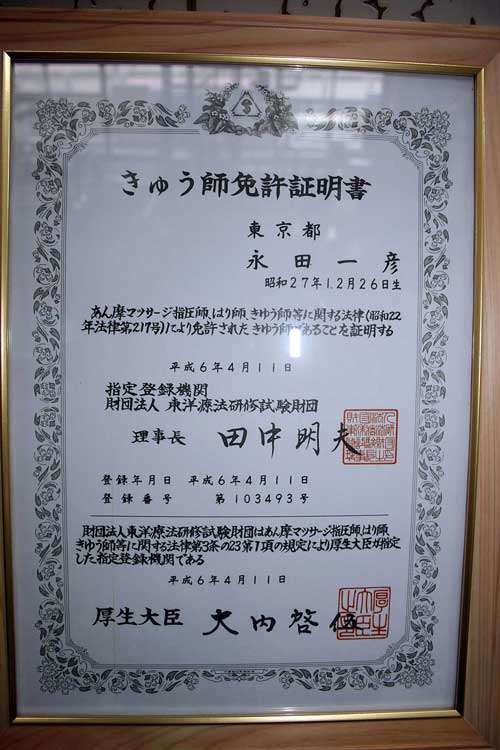 きゅう師免許証明書
東京都
永田一彦
昭和27年12月26日生
あん摩マツサージ指圧師、はり師、きゆう師等に関する法律(昭和22
年法律第217号)により免許されたきゆう師であることを証明する
平成6年4月11日
指定登録機関
財団法人 東洋療法研修試験財団
理事長 田中明夫
登録年月日 平成6年4月11日
登録番号 第103493号
財団法人東洋療法研修試験財団はあん摩マツサージ指圧師、はり師、
きゆう師等に関する法律第3条の23第1項の規定により厚生大臣が指定
した指定登録機関である
平成6年4月11日
厚生大臣 大内啓伍